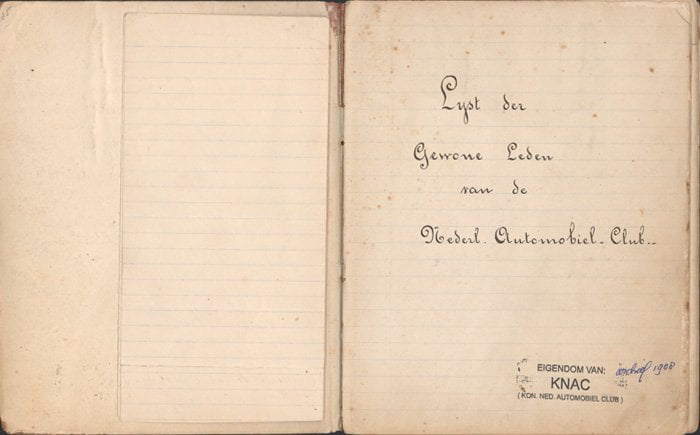 Lyst der
Gewone Leden
van de
Nederl. Automobiel-Club.
EIGENDOM VAN: archief 1908
KNAC
( KON. NED. AUTOMOBIEL CLUB )